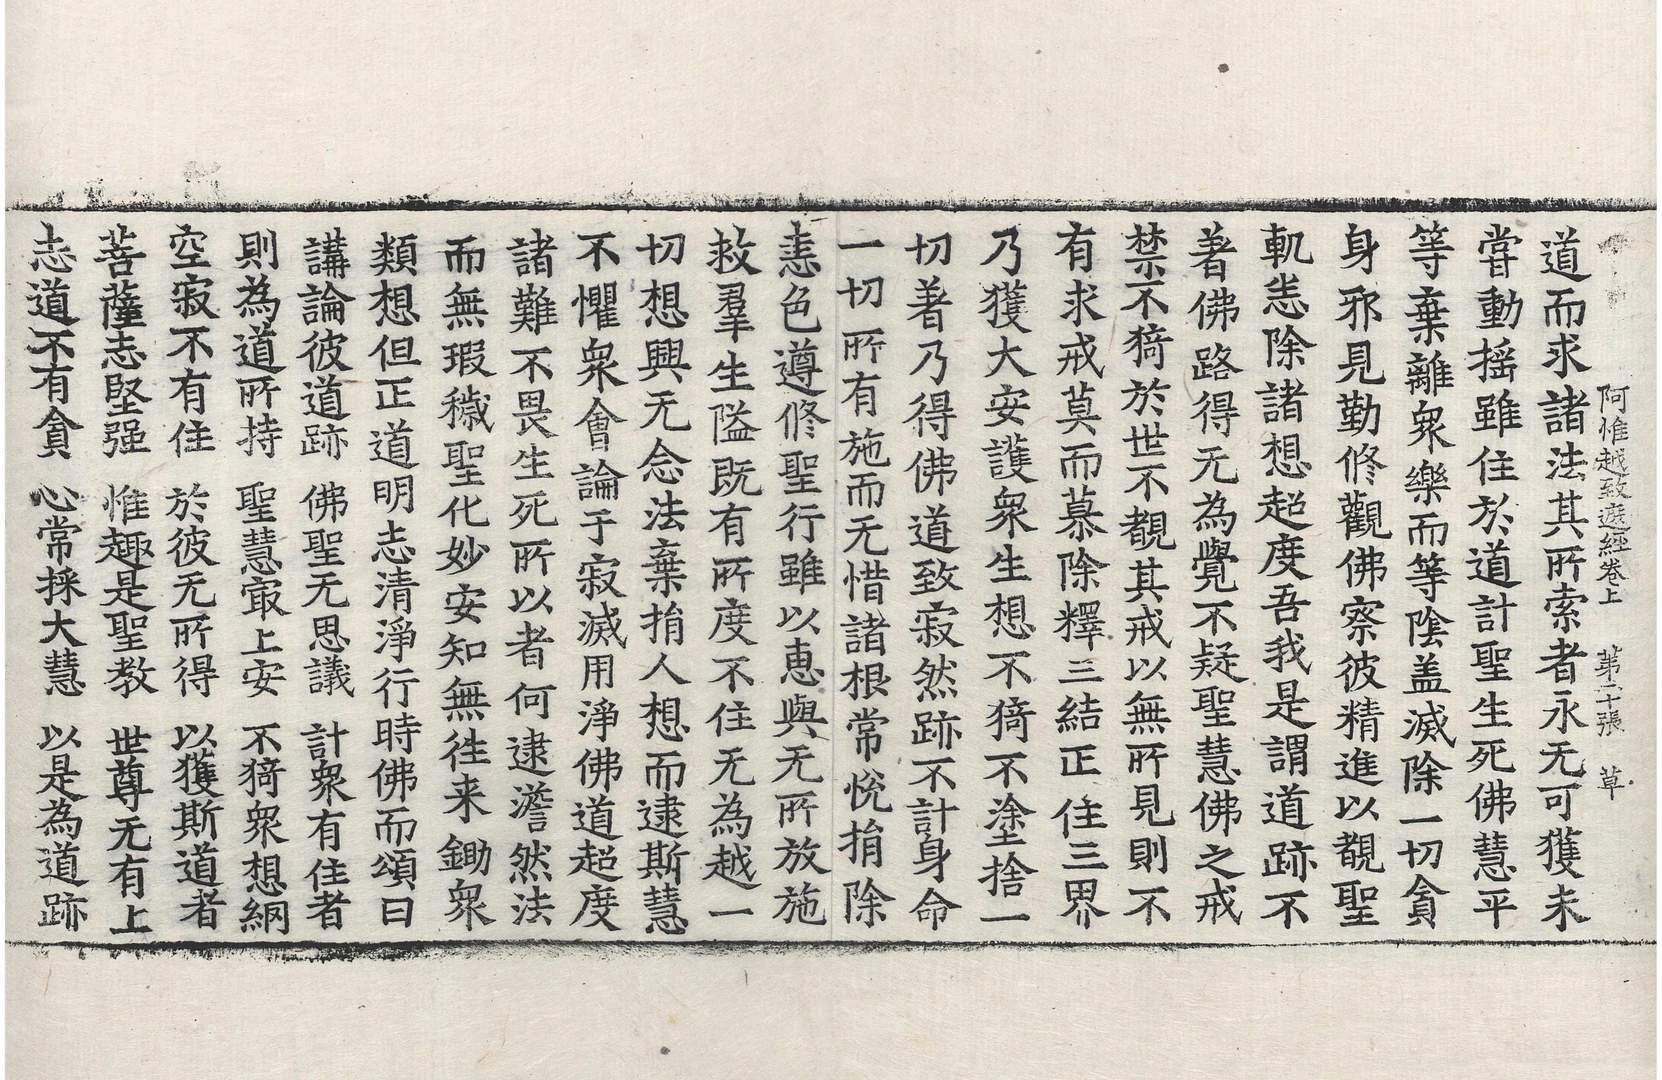 阿惟越致遮經卷上 第二十張 草
道而求諸法其所索者永无可獲未
甞動揺雖住於道計聖生死佛慧平
等棄離衆樂而等陰盖滅除一切貪
身邪見勤修觀佛察彼精進以覩聖
軌恙除諸想超度吾我是謂道跡不
著佛路得无為覺不疑聖慧佛之戒
禁不猗於世不覩其戒以無所見則不
有求戒莫而慕除釋三結正住三界
乃獲大安護衆生想不猗不塗捨一
切著乃得佛道致寂然跡不計身命
一切所有施而无惜諸根常悅捐除
恚色遵修聖行雖以恵與无所放施
救羣生隘既有所度不住无為越一
切想興无念法棄捐人想而逮斯慧
不懼衆會論于寂滅用淨佛道超度
諸難不畏生死所以者何逮澹然法
而無瑕穢聖化妙安知無徃来鋤衆
類想但正道明志清淨行時佛而頌曰
講論彼道跡 佛聖无思議 計衆有住者
則為道所持 聖慧㝡上安 不猗衆想網
空寂不有住 於彼无所得 以獲斯道者
菩薩志堅强 惟趣是聖教 世尊无有上
志道不有貪 心常採大慧 以是為道跡